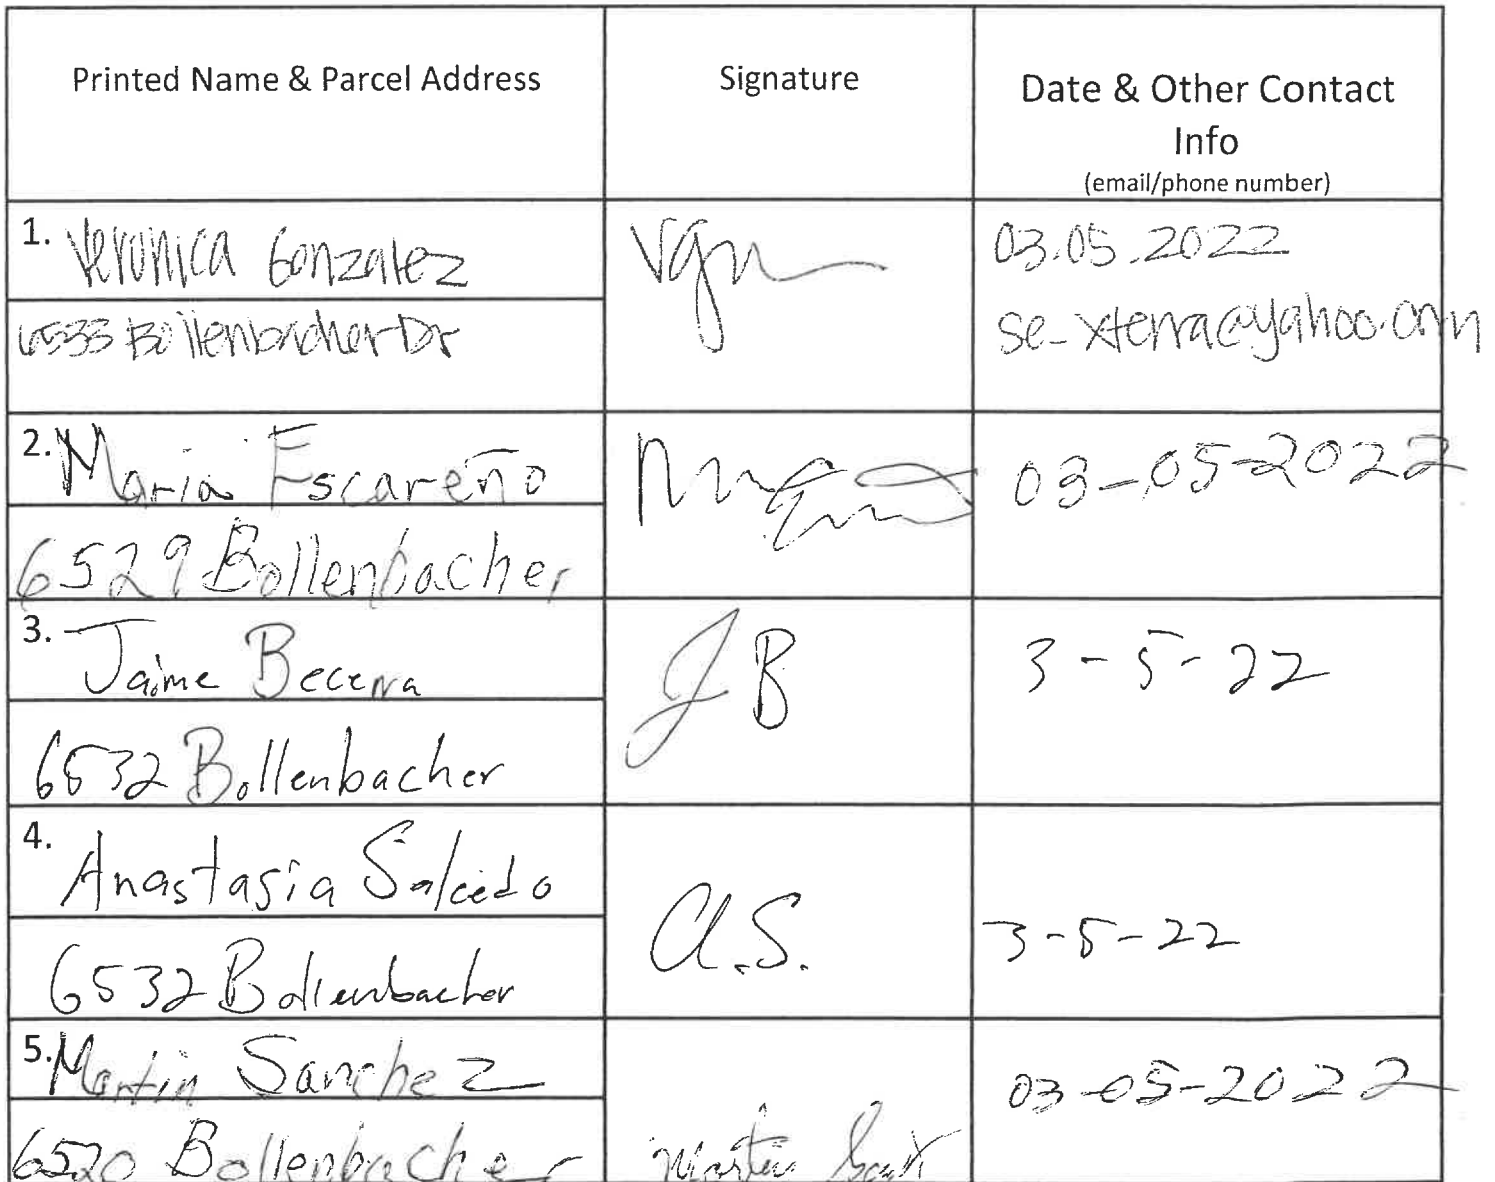 Printed Name & Parcel Address
Signature
Date & Other Contact
Info
(email/phone number)
1. Veronica Gonzalez
6533 Bollenbacher Dr
Vgn
03.05.2022
se_xterra@yahoo.com
2. Maria Escareño
6529 Bollenbacher
03-05-2022
3. Jaime Becerra
6532 Bollenbacher
JB
3-5-22
4. Anastasia Salcedo
6532 Bollenbacher
A.S.
3-5-22
5. Martin Sanchez
6520 Bollenbacher
Martin
03-05-2022